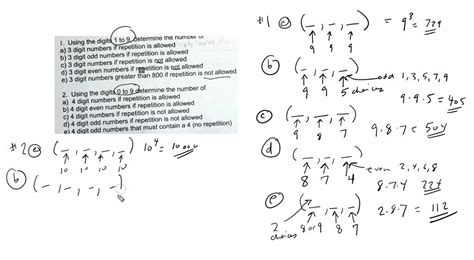 1. Using the digits 1 to 9, determine the number of
a) 3 digit numbers if repetition is allowed
b) 3 digit odd numbers if repetition is allowed
c) 3 digit numbers if repetition is not allowed
d) 3 digit even numbers if repetition is not allowed
e) 3 digit numbers greater than 800 if repetition is not allowed
2. Using the digits 0 to 9, determine the number of
a) 4 digit numbers if repetition is allowed
b) 4 digit even numbers if repetition is allowed
c) 4 digit numbers if repetition is not allowed
d) 4 digit odd numbers if repetition is not allowed
e) 4 digit odd numbers that must contain a 4 (no repetition)
#2 a (_, _, _, _) 10⁴ = 10000
10 10 10 10
b (_, _, _, _)
#1 a (_, _, _) = 9³ = 729
9 9 9
b (_, _, _) odd 1, 3, 5, 7, 9
9 9 5 choices 9·9·5 = 405
c (_, _, _)
9 8 7 9·8·7 = 504
d (_, _, _) even 2, 4, 6, 8
8 7 4 8·7·4 224
e (_, _, _) 2·8·7 = 112
2 choices 8 or 9 8 7